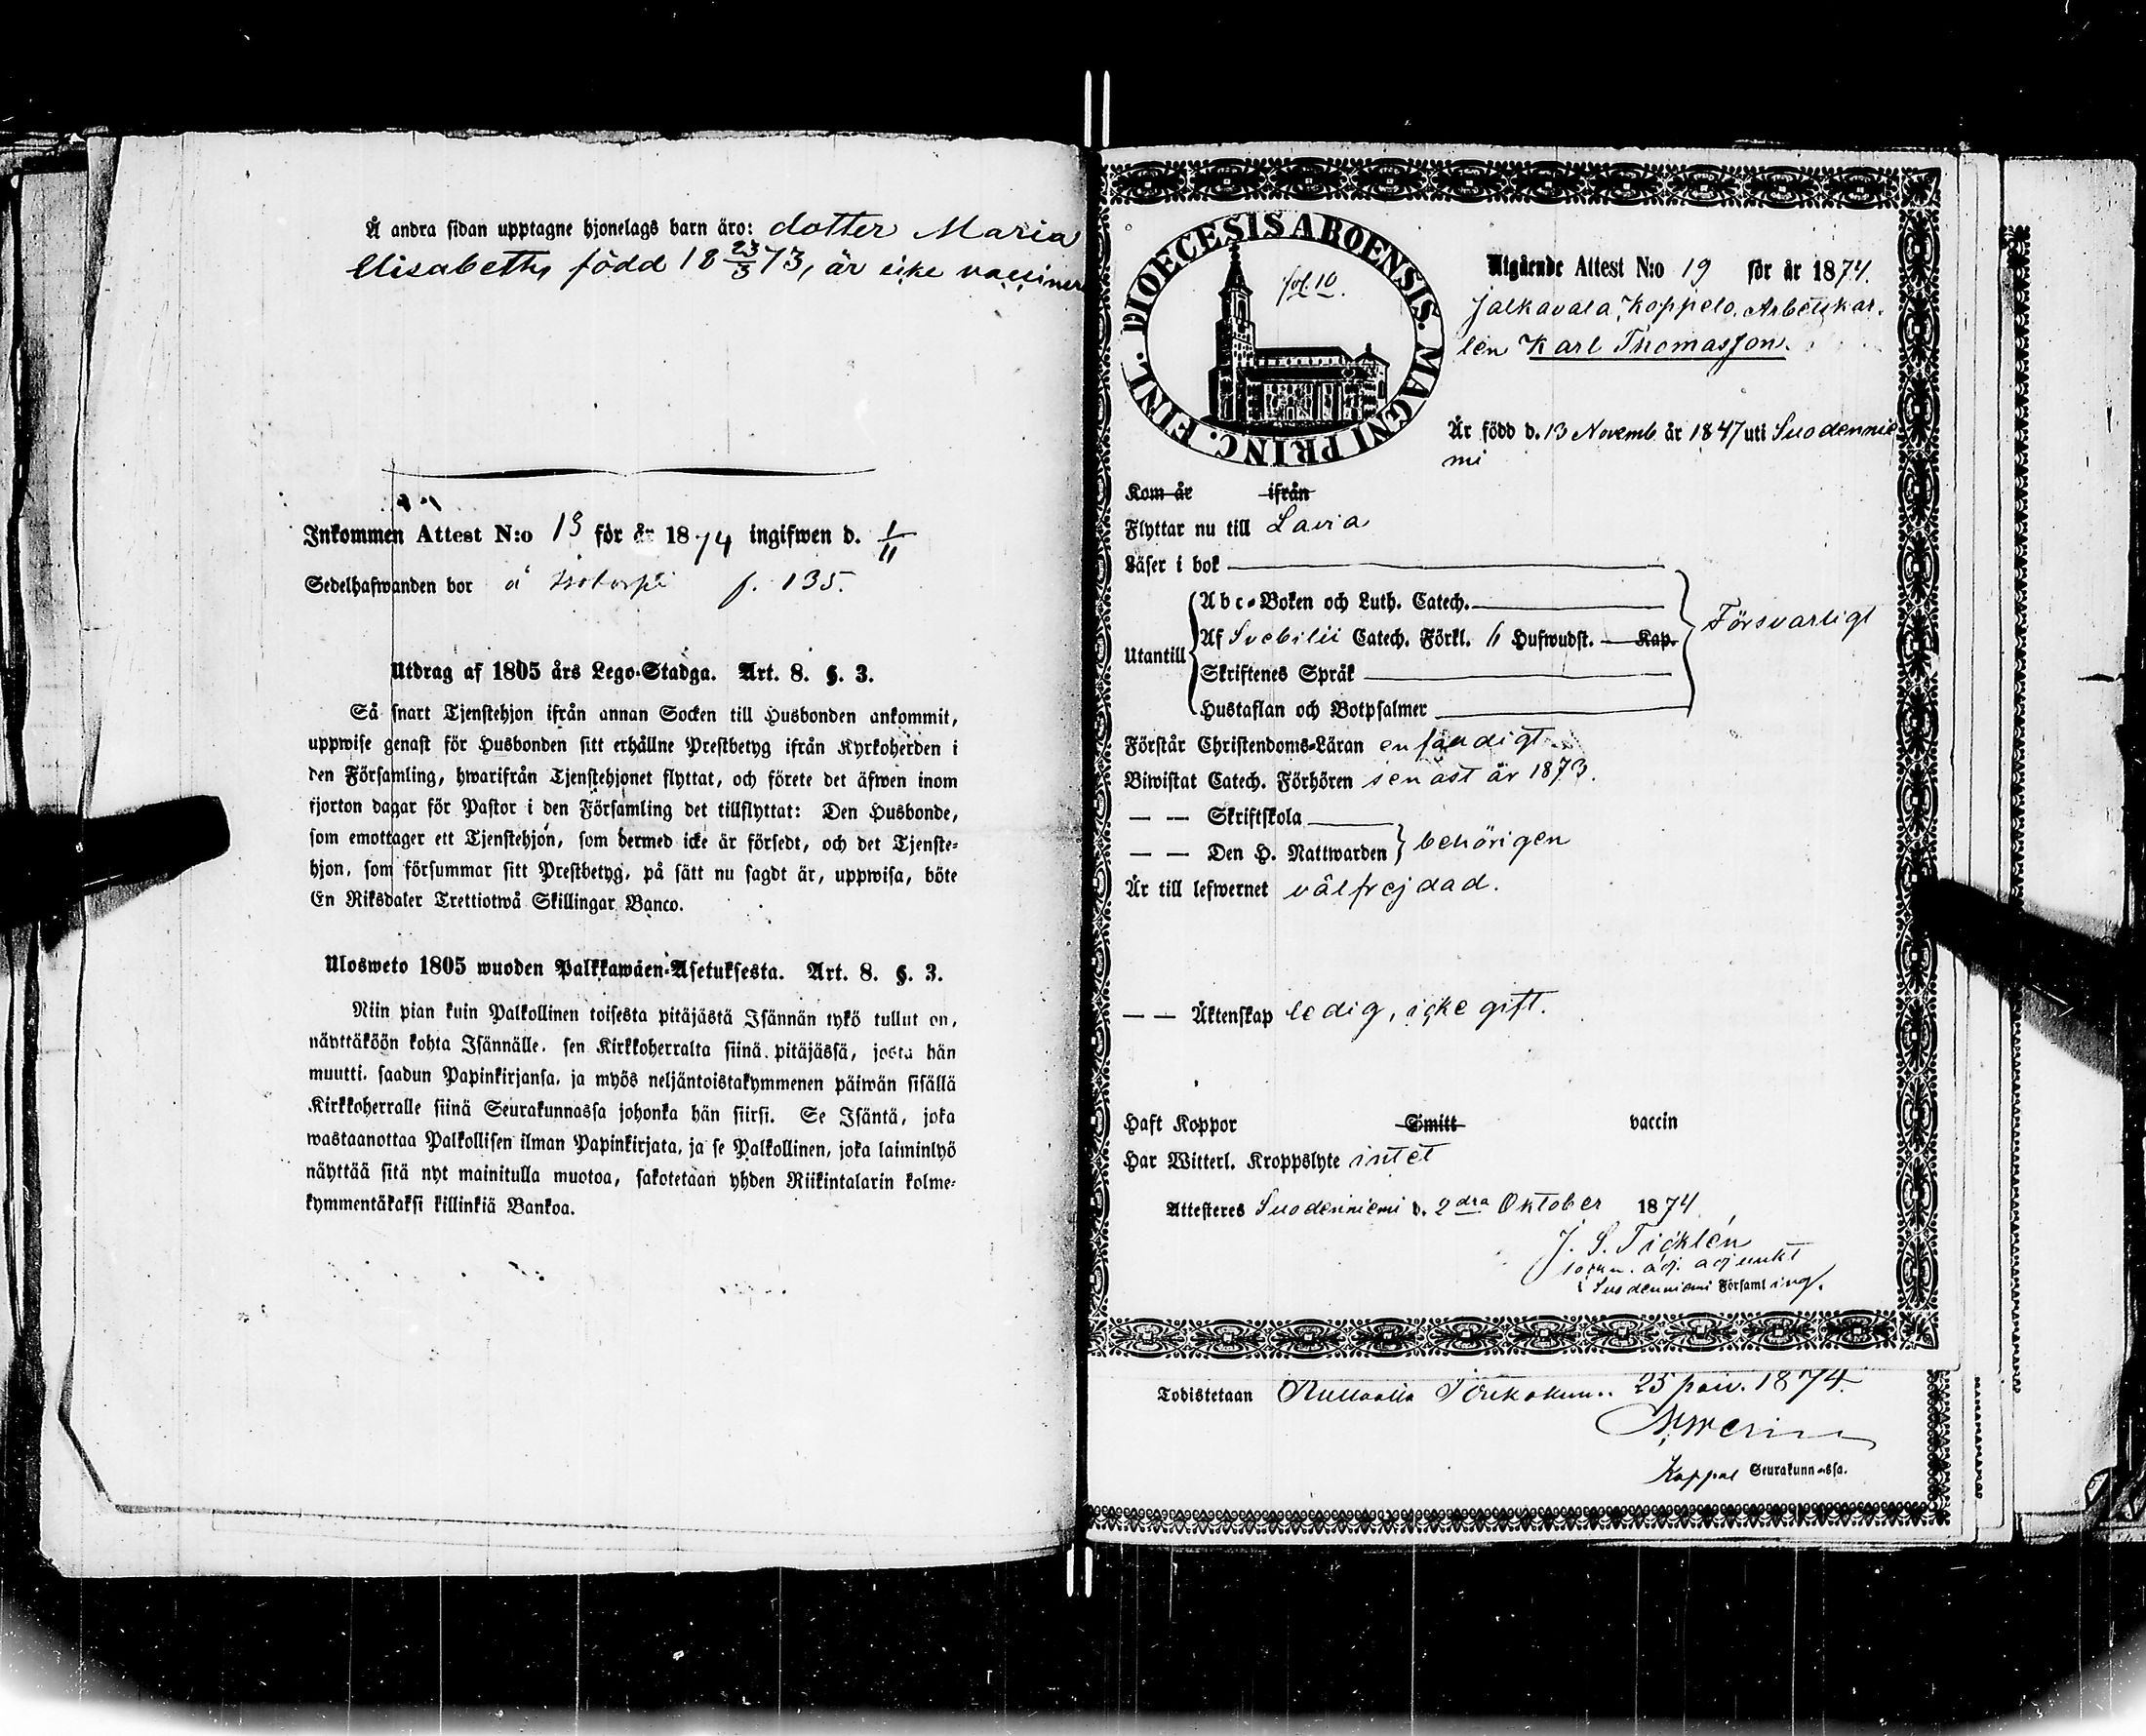 Å andra sidan upptagne hjonelags barn äro: dotter Maria
Elisabeth, född 18 23/3 73, är icke vacciner
Inkommen Attest N:o 13 för år 1874 ingifwen d. 1/11
Sedelhafwanden bor å f. 135.
Utdrag af 1805 års Lego-Stadga. Art. 8. §. 3.
Så snart Tjenstehjon ifrån annan Socken till Husbonden ankommit,
uppwise genast för Husbonden sitt erhållne Prestbetyg ifrån Kyrkoherden i
den Församling, hwarifrån Tjenstehjonet flyttat, och förete det äfwen inom
fjorton dagar för Pastor i den Församling det tillflyttat: Den Husbonde,
som emottager ett Tjenstehjon, som dermed icke är försedt, och det Tjenste-
hjon, som försummar sitt Prestbetyg, på sätt nu sagdt är, uppwisa, böte
En Riksdaler Trettiotwå Skillingar Banco.
Ulosweto 1805 wuoden Palkkawäen-Asetuksesta. Art. 8. §. 3.
Niin pian kuin Palkollinen toisesta pitäjästä Isännän tykö tullut on,
näyttäköön kohta Isännälle, sen Kirkkoherralta siinä pitäjässä, josta hän
muutti, saadun Papinkirjansa, ja myös neljäntoistakymmenen päiwän sisällä
Kirkkoherralle siinä Seurakunnassa johonka hän siirsi. Se Isäntä, joka
wastaanottaa Palkollisen ilman Papinkirjata, ja se Palkollinen, joka laiminlyö
näyttää sitä nyt mainitulla muotoa, sakotetaan yhden Riikintalarin kolme-
kymmentäkaksi killinkiä Bankoa.
DIOECESIS ABOENSIS. MAGNI PRINC. FINL.
fol. 10.
Utgående Attest N:o 19 för år 1874.
Jalkavala, Koppelo, Arbetskar-
len Karl Thomasson.
Är född d. 13 Novemb år 1847 uti Suodennie
mi
Kom år ifrån
Flyttar nu till Lavia
Läser i bok
Utantill
Abc-Boken och Luth. Catech.
Af Svebilii Catech. Förkl. Hufwudst. Kap.
Skriftenes Språk
Hustaflan och Botpsalmer
Försvarligt
Förstår Christendoms-Läran enfaldigt
Biwistat Catech. Förhören senast år 1873.
— — Skriftskola
— — Den H. Nattwarden behörigen
Är till lefwernet välfrejdad.
— — Äktenskap ledig, icke gift.
Haft Koppor Smitt vaccin
Har Witterl. Kroppslyte intet
Attesteras Suodenniemi d. 2dra Oktober 1874
J. S. Ticklén
adj. adjunkt
i Suodenniemi Församling.
Todistetaan 25 päiv. 1874
Kappel Seurakunnassa.